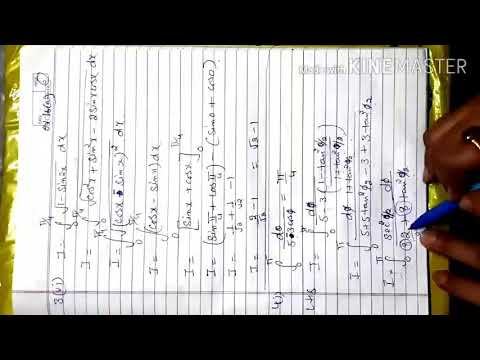 Made with KINEMASTER
3(vi)
I = ∫₀^{π/4} √(1 - sin2x) dx
I = ∫₀^{π/4} √(cos²x + sin²x - 2sinx cosx) dx
I = ∫₀^{π/4} √(cosx - sinx)² dx
I = ∫₀^{π/4} (cosx - sinx) dx
I = [sinx + cosx]₀^{π/4}
I = (sin π/4 + cos π/4) - (sin0 + cos0)
I = 1/√2 + 1/√2 - 1
I = 2/√2 - 1 = √2 - 1
∫₀^{π} dφ/(5-3cosφ) = π/4
LHS
I = ∫₀^{π} dφ/(5 - 3((1-tan²φ/2)/(1+tan²φ/2)))
I = ∫₀^{π} dφ 1+tan²φ/2 / 5+5tan²φ/2 - 3 + 3tan²φ/2
I = ∫₀^{π} sec²φ/2 dφ / 2 + 8 tan²φ/2